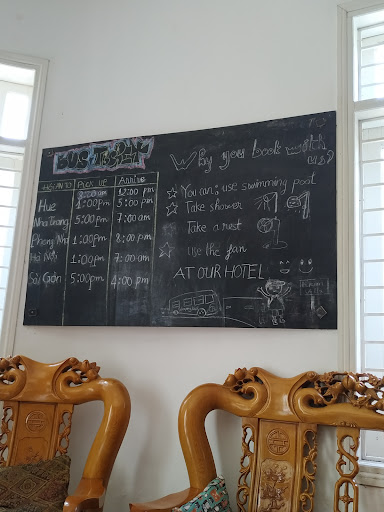 BUS TICKET
HỘI AN TO PICK UP Arrive
8:00 am 12:00 pm
Hue 1:00pm 5:00 pm
Nha Trang 5:00 pm 7:00 am
Phong Nha 1:00pm 8:00 pm
Hà Nội 1:00 pm 7:00 am
Sài Gòn 5:00pm 4:00 pm
Why you book with
us?
You can: use swimming pool
Take shower
Take a rest
use the fan
AT OUR HOTEL